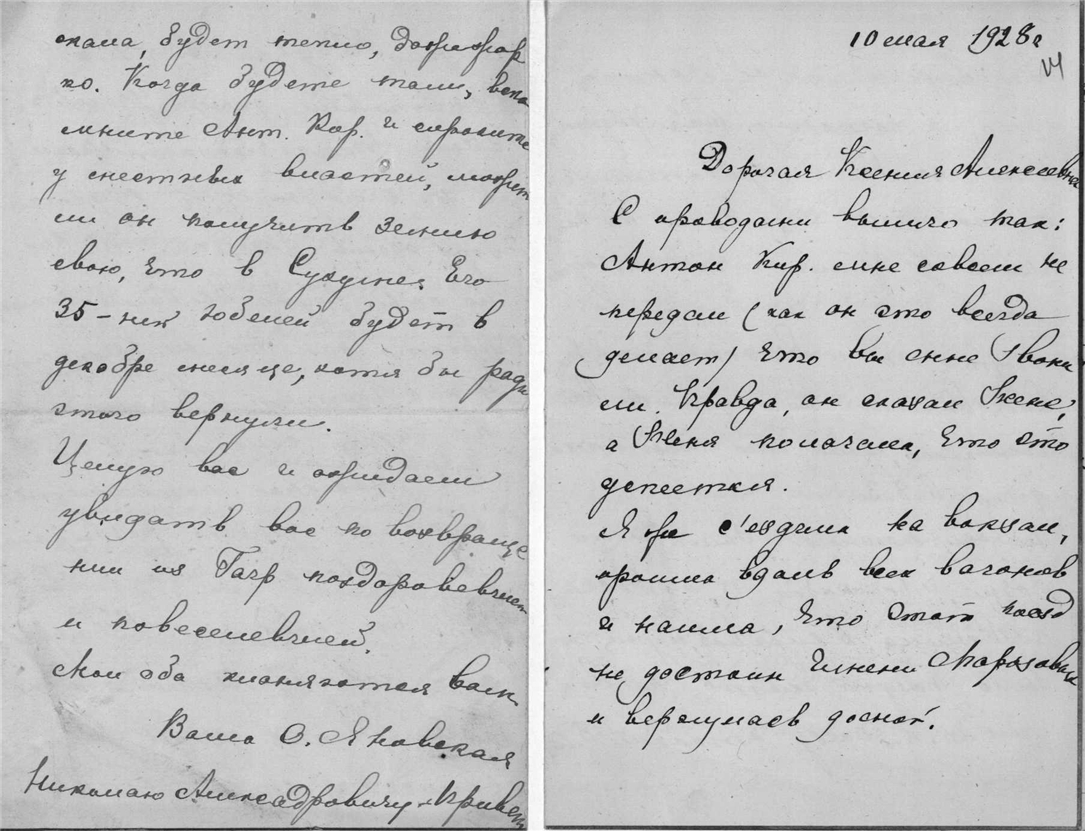 10 мая 1928 г
14
Дорогая Ксения Алексеевна
С проводами вышло так:
Антон Кар. мне совсем не
передал (как он это всегда
делает) что вы мне звони
ли. Правда, он сказал Жене,
а Женя полагала, что это
успеется.
Я же с'ездила на вокзал,
прошла вдоль всех вагонов
и нашла, что этот поезд
не достоин имени Морозовых
и вернулась домой.
скала, будет тепло, даже жар
ко. Когда будете там, вспо
мните Ант. Кар. и спросите
у местных властей, может
ли он получить землю
свою, что в Сухуме. Его
35-ник юбилей будет в
декабре месяце, хотя бы ради
этого вернули.
Целую вас и ожидаем
увидать вас по возвраще
нии из Гагр поздоровевшей
и повеселевшей.
Мои оба кланяются вам.
Ваша О. Яновская
Николаю Александровичу привет